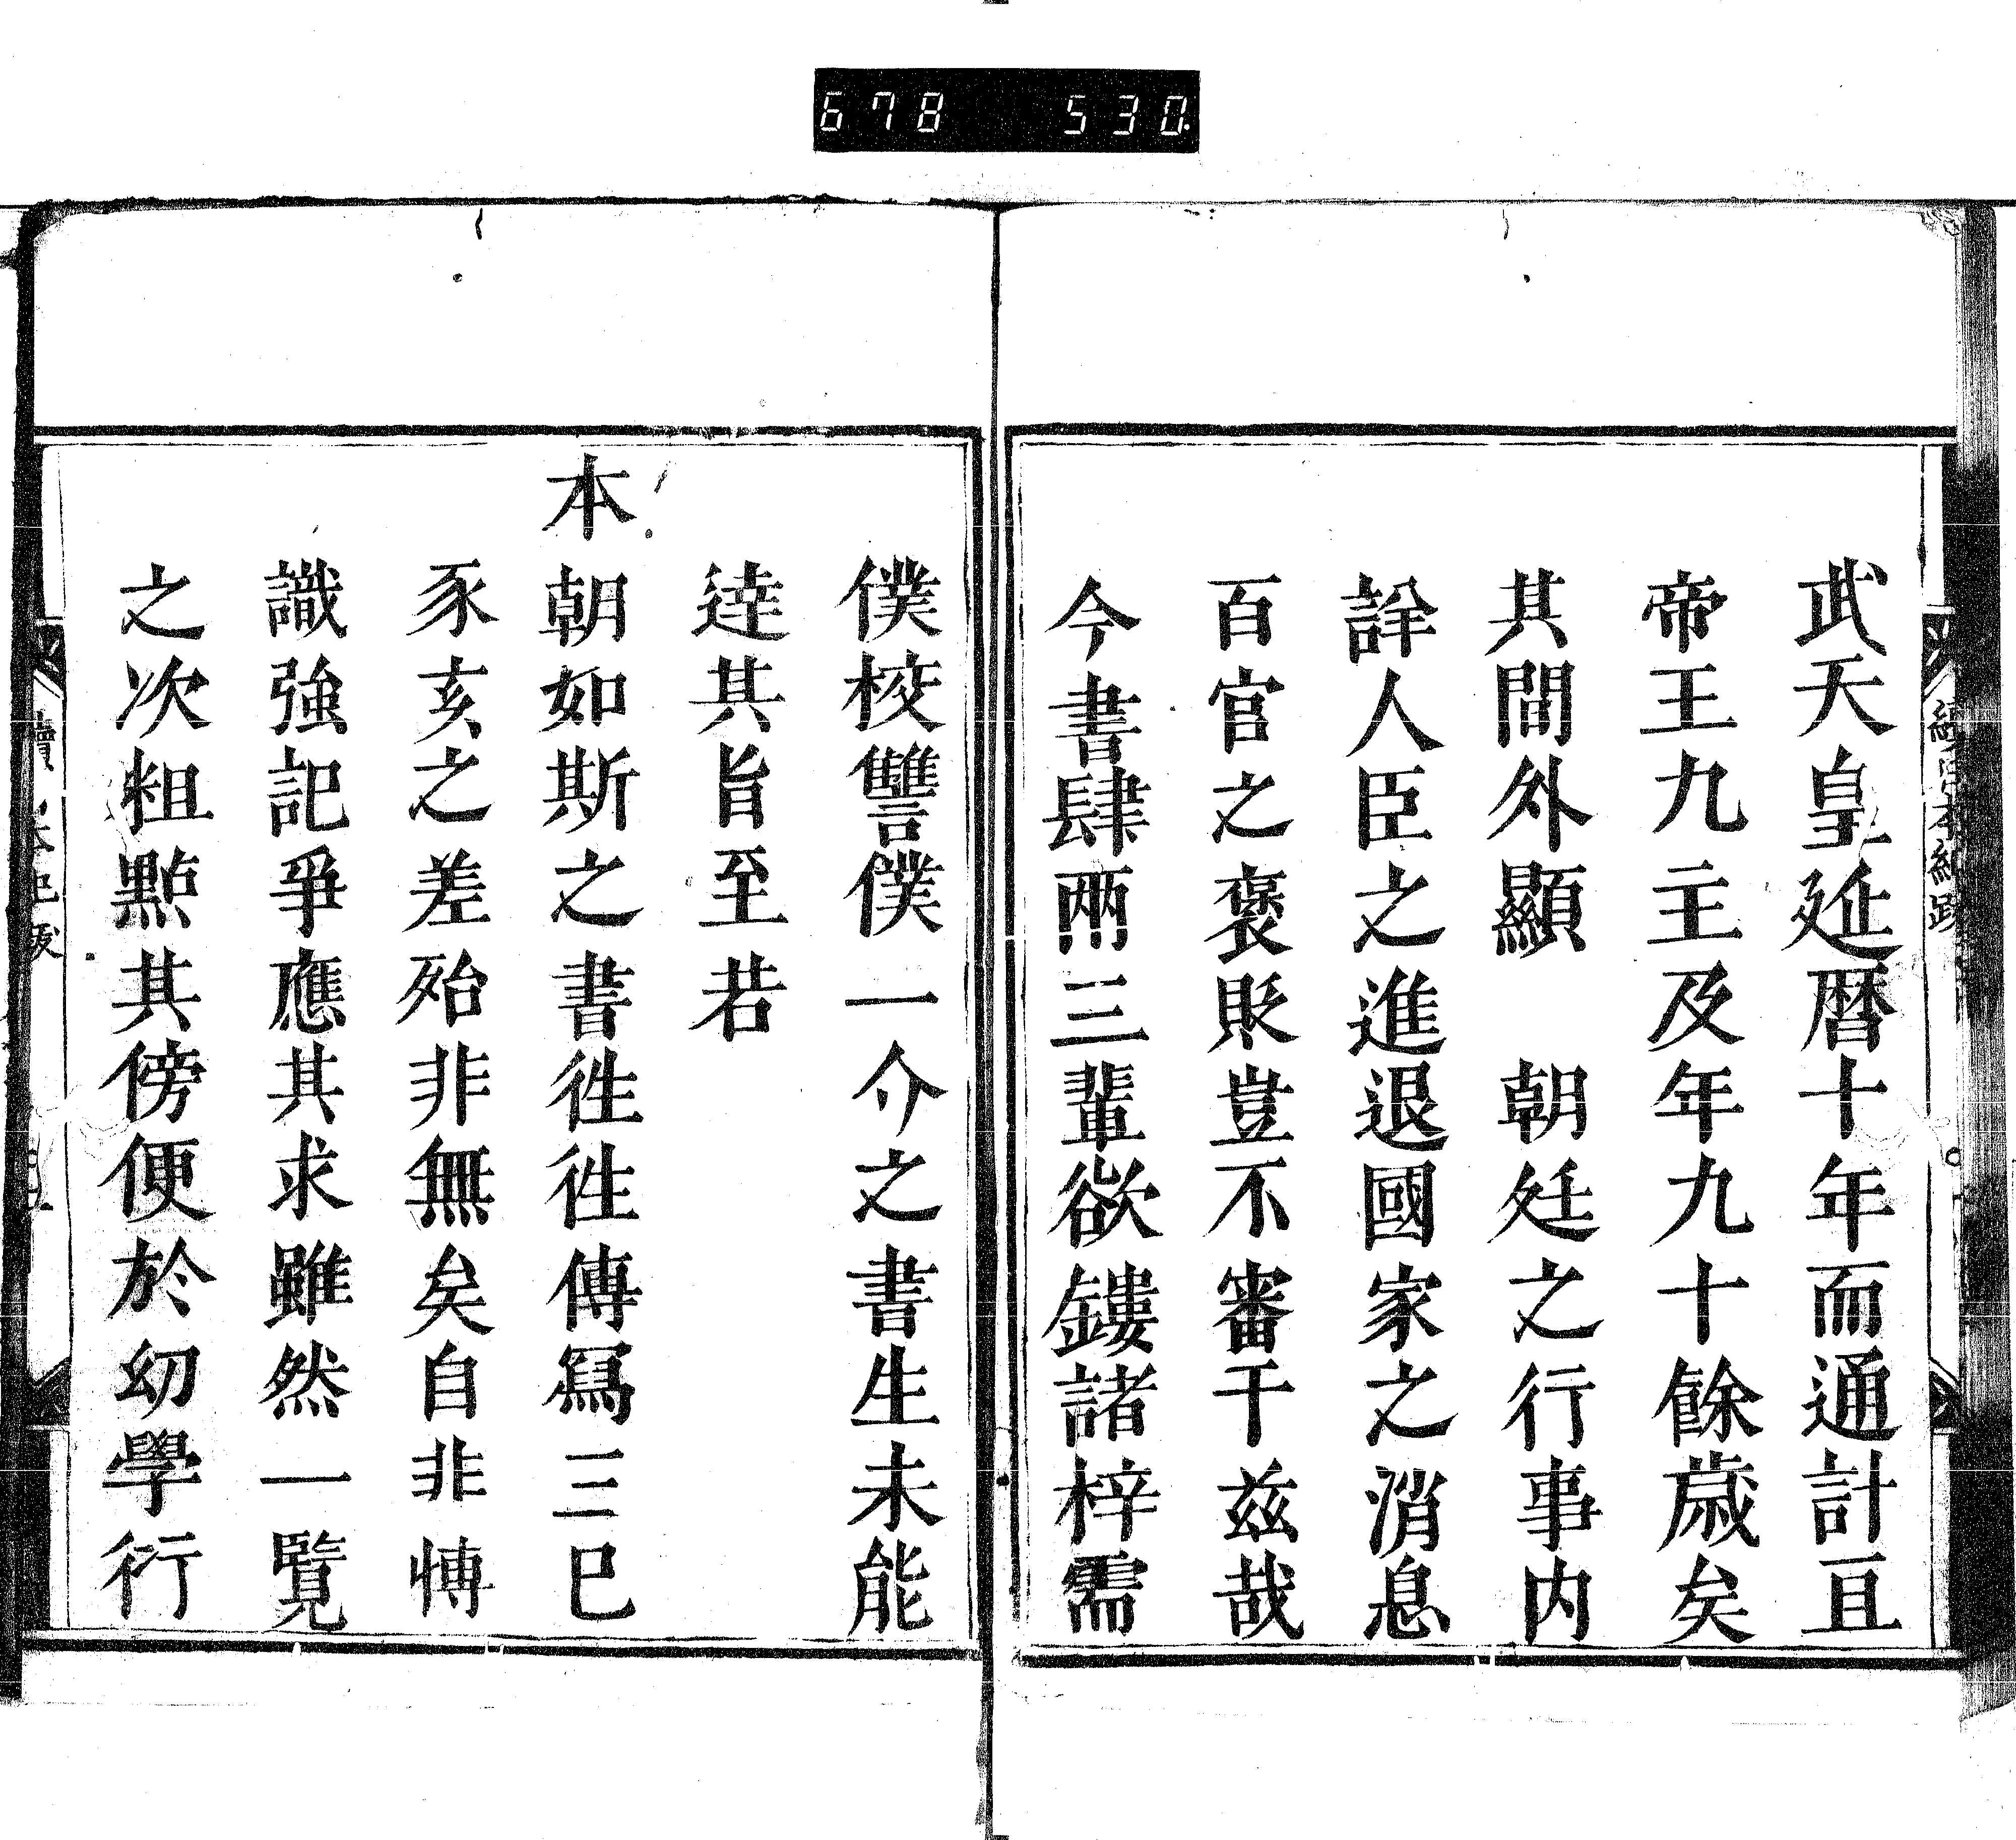 678 530
續日本紀跋
武天皇延暦十年而通計亘
帝王九主及年九十餘歳矣
其間外顯　朝廷之行事内
詳人臣之進退國家之消息
百官之褒貶豈不審于兹哉
今書肆兩三輩欲鏤諸梓需
僕校讐僕一介之書生未能
達其旨至若
本朝如斯之書徃徃傳冩三巳
豕亥之差殆非無矣自非博
識強記爭應其求雖然一覽
之次粗點其傍便於幼學衍